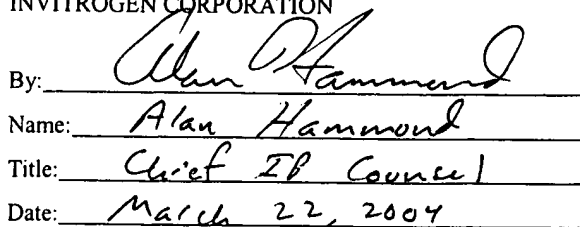 INVITROGEN CORPORATION
By: Alan Hammond
Name: Alan Hammond
Title: Chief IP Counsel
Date: March 22, 2004